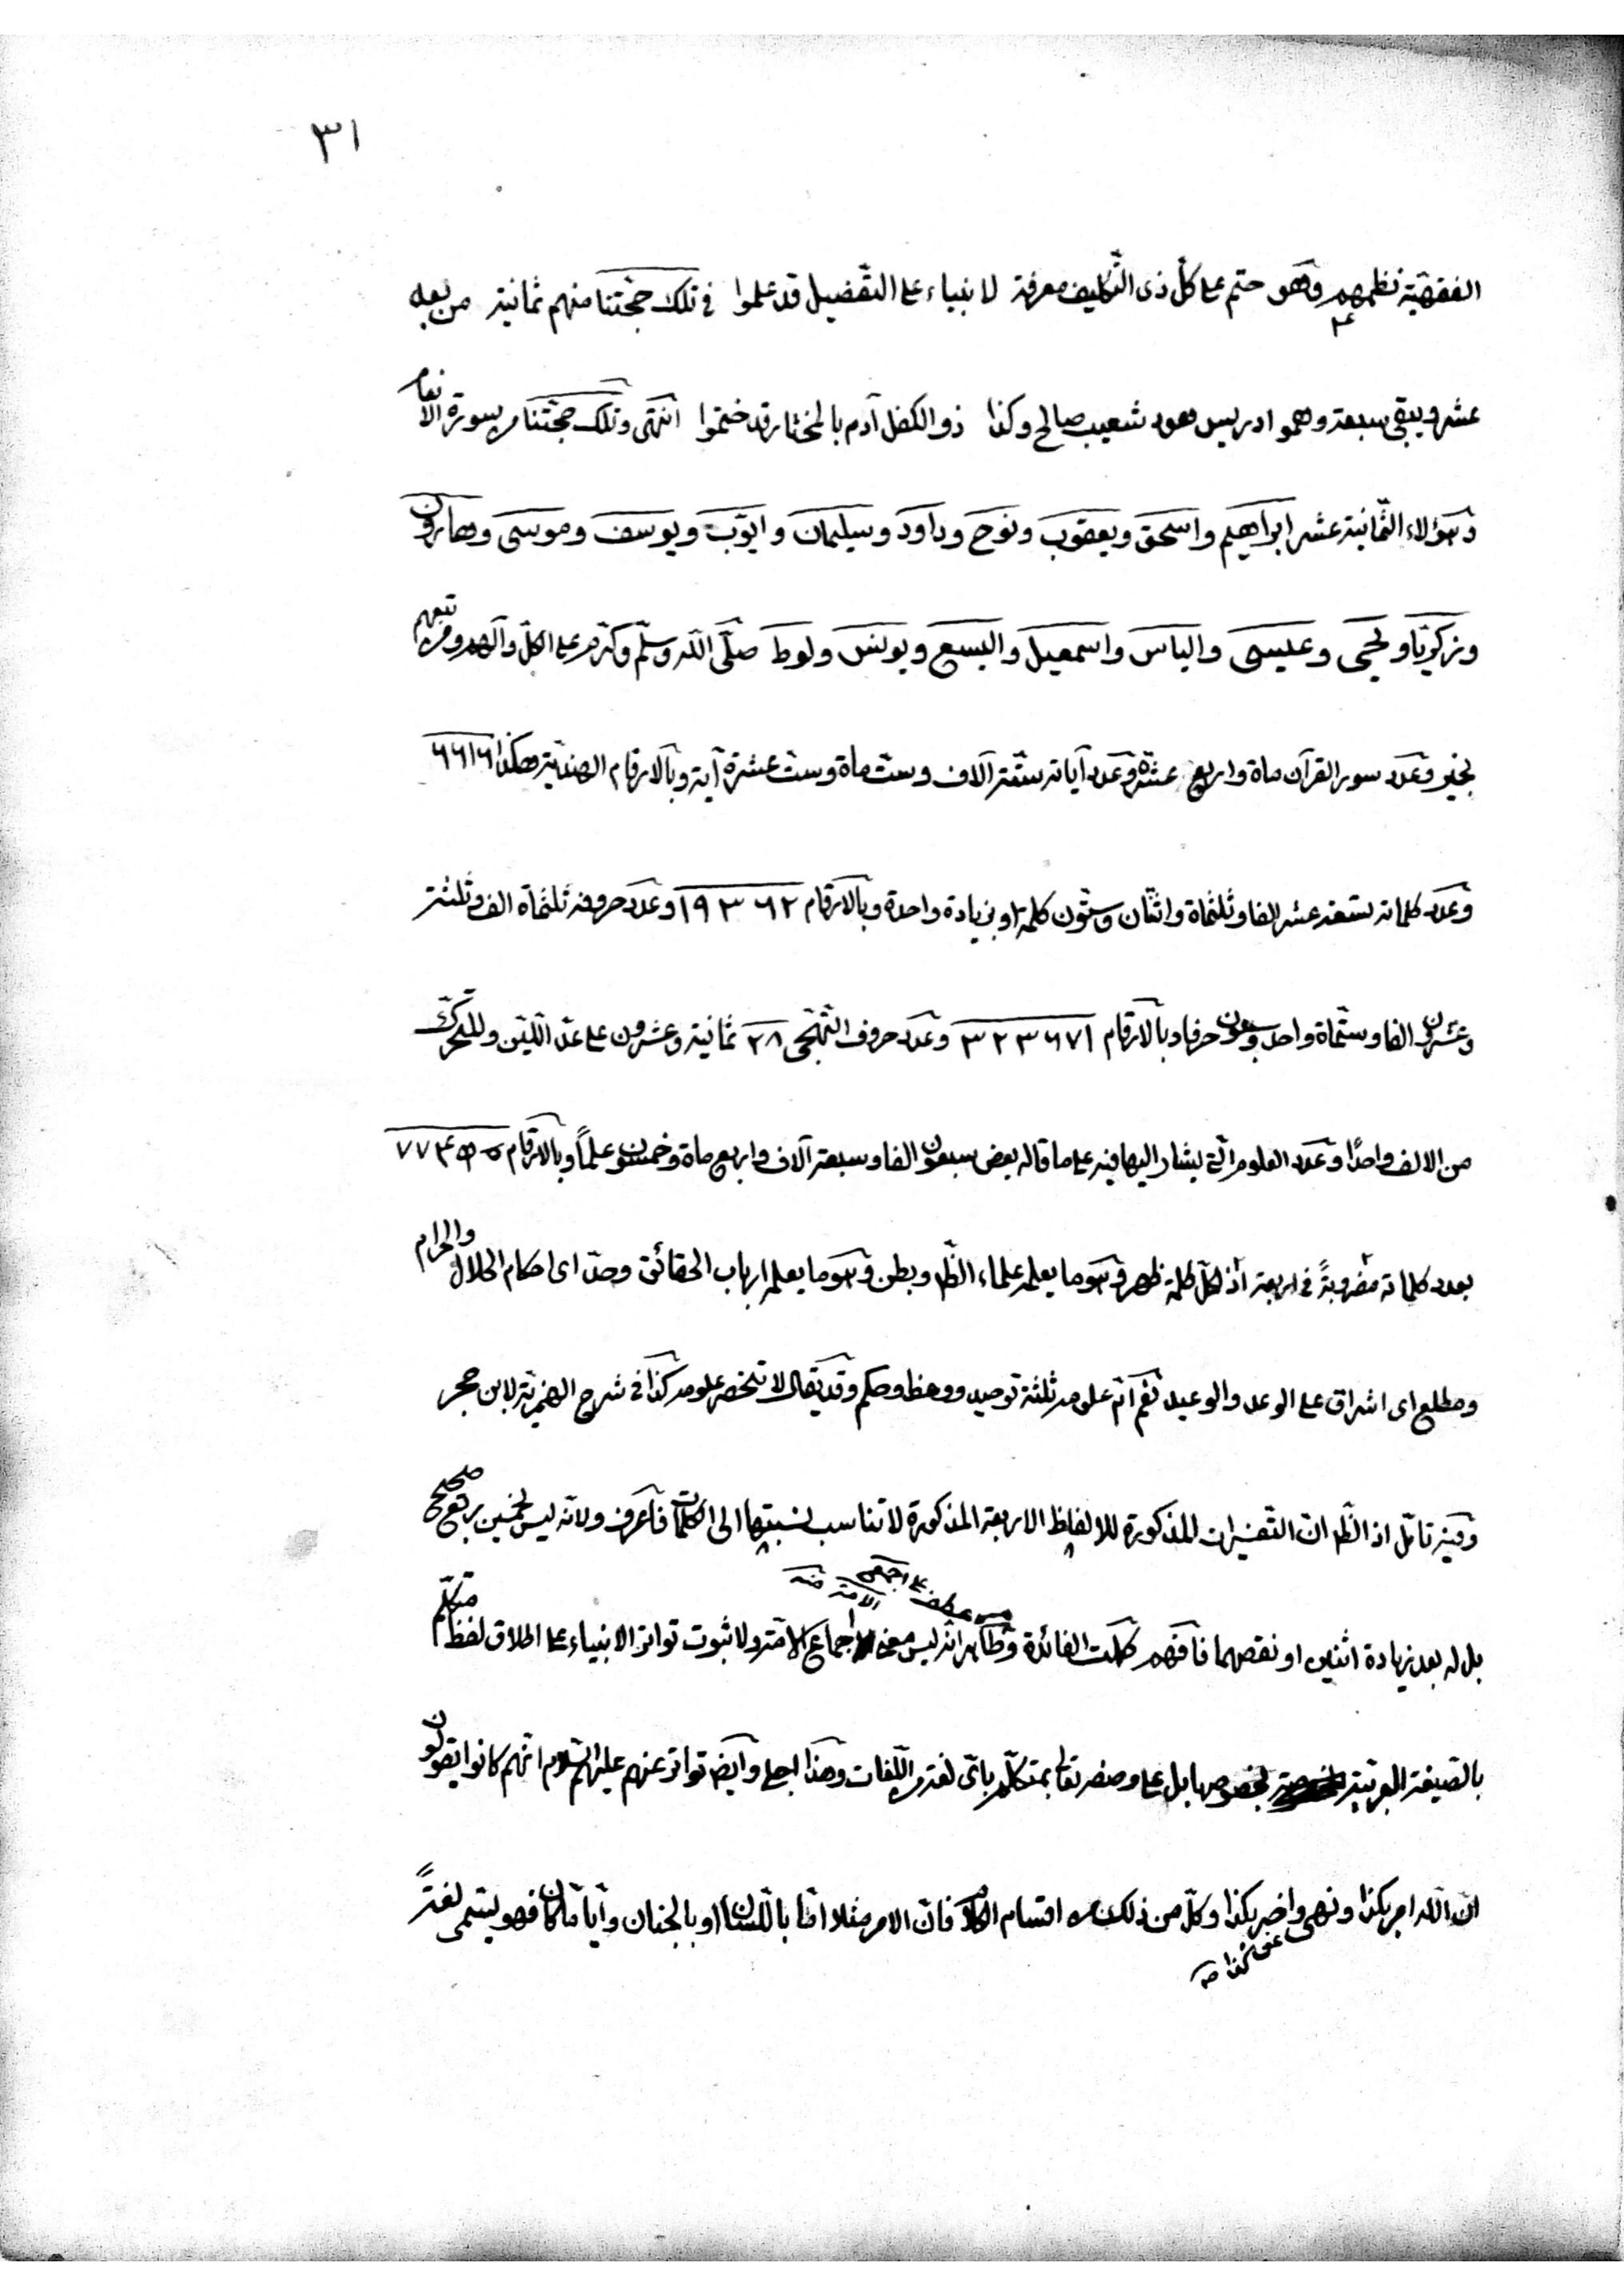 ٣١
الفقهيّة نظمهم وهو حتم على كلّ ذى التّكليف معرفة لانبياء على التّفضيل قد علموا فى تلك حجّتنا منهم ثمانية من بعد
عشر ويبقى سبعة وهمو ادريس هود شعيب صالح وكذا ذو الكفل آدم بالمختار قد ختموا انتهى وتلك حجّتنا من سورة الانعام
وهؤلاء الثّمانية عشر ابراهيم واسحق ويعقوب ونوح وداود وسليمان وايّوب ويوسف وموسى وهارون
وزكريّا ويحيى وعيسى والياس واسمعيل واليسع ويونس ولوط صلّى اللّه وسلّم وكرّم على الكلّ وآلهم ومن تبعهم
بخير وعدد سور القرآن ماة واربع عشرة وعدد آياته ستّة آلاف وست ماة وست عشرة آية وبالارقام الهنديّة هكذا ٦٦١٦
وعدد كلماته تسعة عشر الفا وثلثماة واثنان وستّون كلمة او بزيادة واحدة وبالارقام ١٩٣٦٢ وعدد حروفه ثلثماة الف وثلثة
وعشرون الفا وستّماة واحد وسبعون حرفا وبالارقام ٣٢٣٦٧١ وعدد حروف التّهجّى ٢٨ ثمانية وعشرون على عدّ اللّين والمتحرّك
من الالف واحدًا وعدد العلوم الّتى يشار اليها فيه على ما قاله بعض سبعون الفا وسبعة آلاف واربع ماة وخمسون علمًا وبالارقام ٧٧٤٥٠
بعدد كلماته مضروبةً فى اربعة اذ لكلّ كلمة ظهر وهو ما يعلمه علماء الظّ وبطن وهو ما يعلمه ارباب الحقائق وحدّ اى احكام الحلال والحرام
ومطلع اى اشراق على الوعد والوعيد نعم امّ علومه ثلثة توحيد ووعظ وحكم وقد يقال لا تنحصر علومه كذا فى شرح الهمزيّة لابن حجر
وفيه تامّل اذ الظّ انّ التّفسيرات المذكورة للالفاظ الاربعة المذكورة لا تناسب نسبتها الى الكلمات فاعرف ولانّه ليس لخمسين ربع صحيح
بل له بعد زيادة اثنين او نقصهما فافهم كملت الفائدة وظاهر انّه ليس معنى اجماع الامّة ولا ثبوت تواتر الانبياء على اطلاق لفظ متكلّم
عطف على اجماع الامّة منه
بالصيغة العربيّة بخصوصها بل على وصفه تعالى بمتكلّم باىّ لغة من اللّغات وهذا اجلى وايض تواتر عنهم عليهم السّلام انّهم كانوا يقولون
انّ اللّه امر بكذا ونهى واخبر بكذا وكلّ من ذلك من اقسام الكلام فانّ الامر مثلا امّا باللّسان او بالجنان وايّا ما كان فهو يسمّى لغةً
عن كذا صح